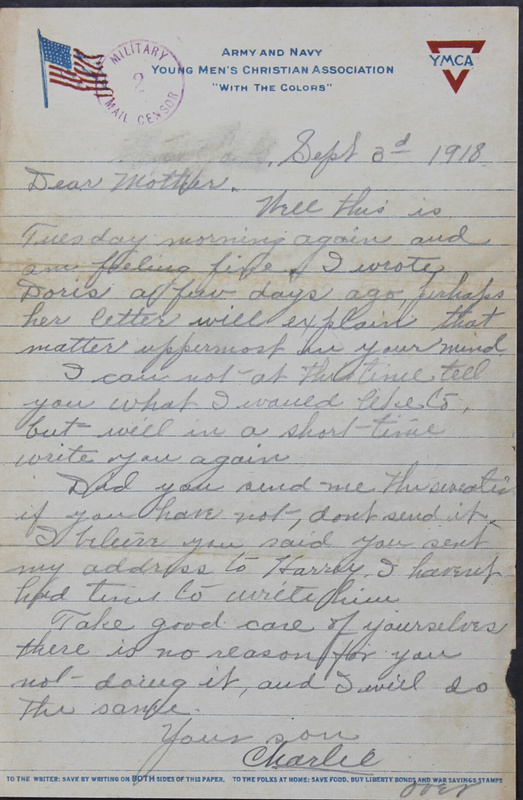 MILITARY
2
MAIL CENSOR
ARMY AND NAVY
YOUNG MEN'S CHRISTIAN ASSOCIATION
"WITH THE COLORS"
YMCA
Sept 3d 1918
Dear Mother.
Well this is
Tuesday morning again and
am feeling fine. I wrote
Doris a few days ago, perhaps
her letter will explain that
matter uppermost in your mind
I can not at this time tell
you what I would like to,
but will in a short time
write you again
Did you send me the sweater
if you have not, dont send it.
I beleive you said you sent
my address to Harry. I havent
had time to write him
Take good care of yourselves
there is no reason for you
not doing it, and I will do
the same.
Your son
Charlie
TO THE WRITER: SAVE BY WRITING ON BOTH SIDES OF THIS PAPER. TO THE FOLKS AT HOME: SAVE FOOD, BUY LIBERTY BONDS AND WAR SAVINGS STAMPS
over